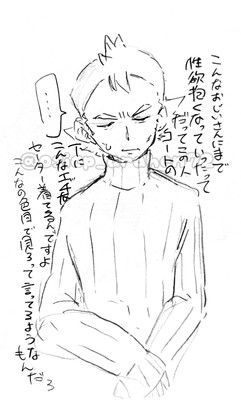 こんなおじいさんにまで
性欲抱くなっていいたって
だってこの人
コートの
下に
こんなエッチな
セーター着てるんですよ
こんなの色目で見ろって言ってるようなもんだろ
……